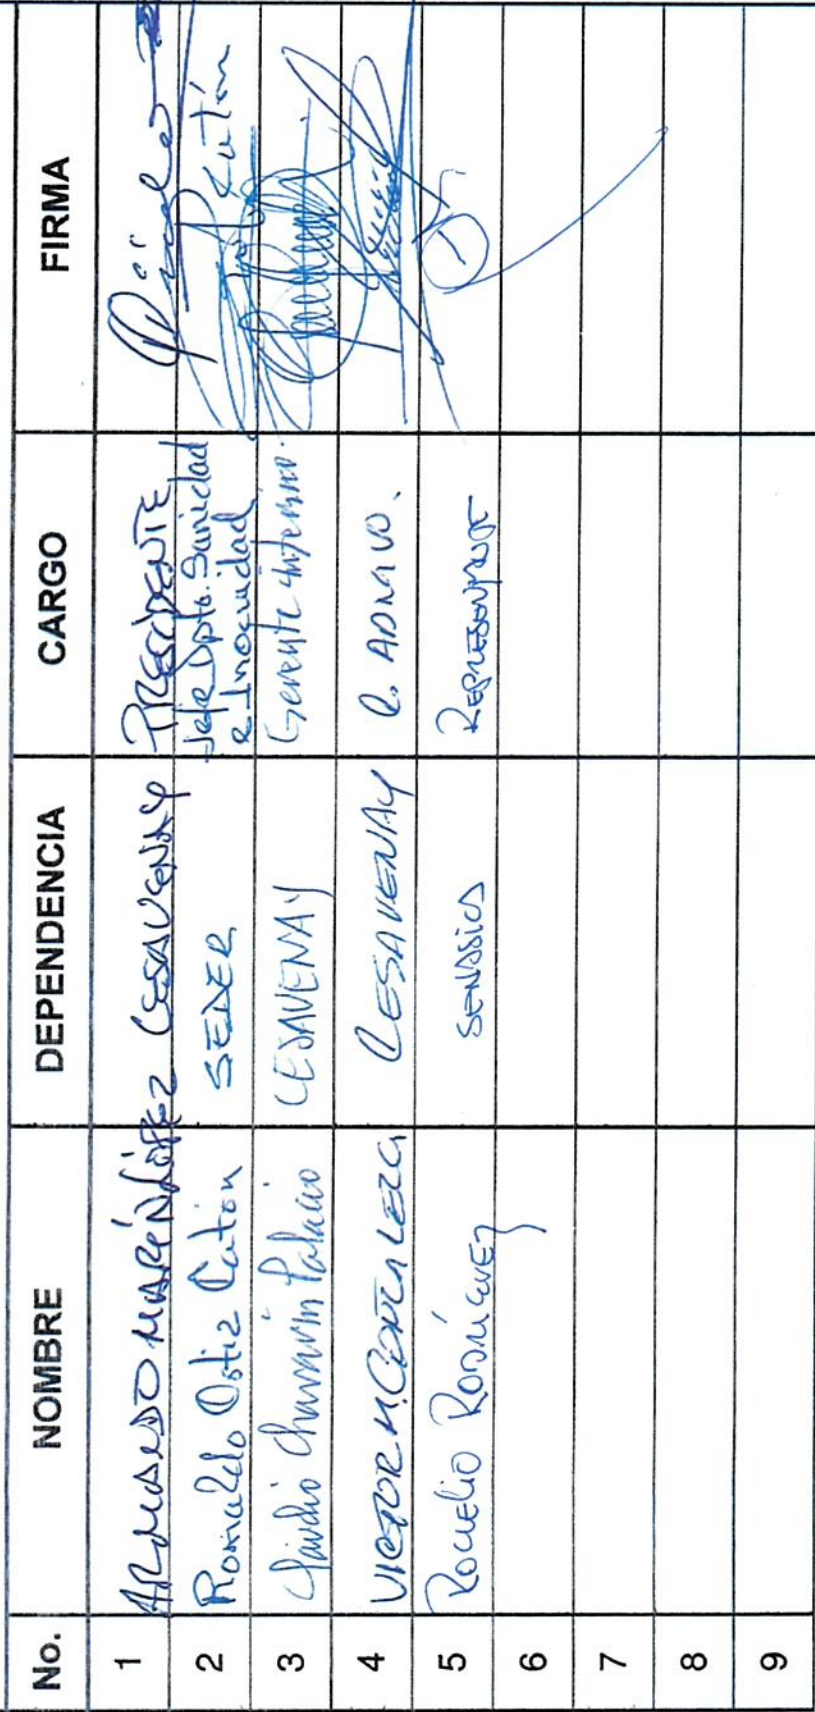 No. NOMBRE DEPENDENCIA CARGO FIRMA
1 ARMANDO MARÍN LÓPEZ CESAVENAY PRESIDENTE
2 Romualdo Ortiz Catón SEDER Jefe Dpto. Sanidad
e Inocuidad Catón
3 Claudio Chavarin Palacio CESAVENAY Gerente interino.
4 VICTOR M. GONZALEZ G CESAVENAY C. ADMVO.
5 ROGELIO RODRÍGUEZ SENASICA REPRESENTANTE
6
7
8
9